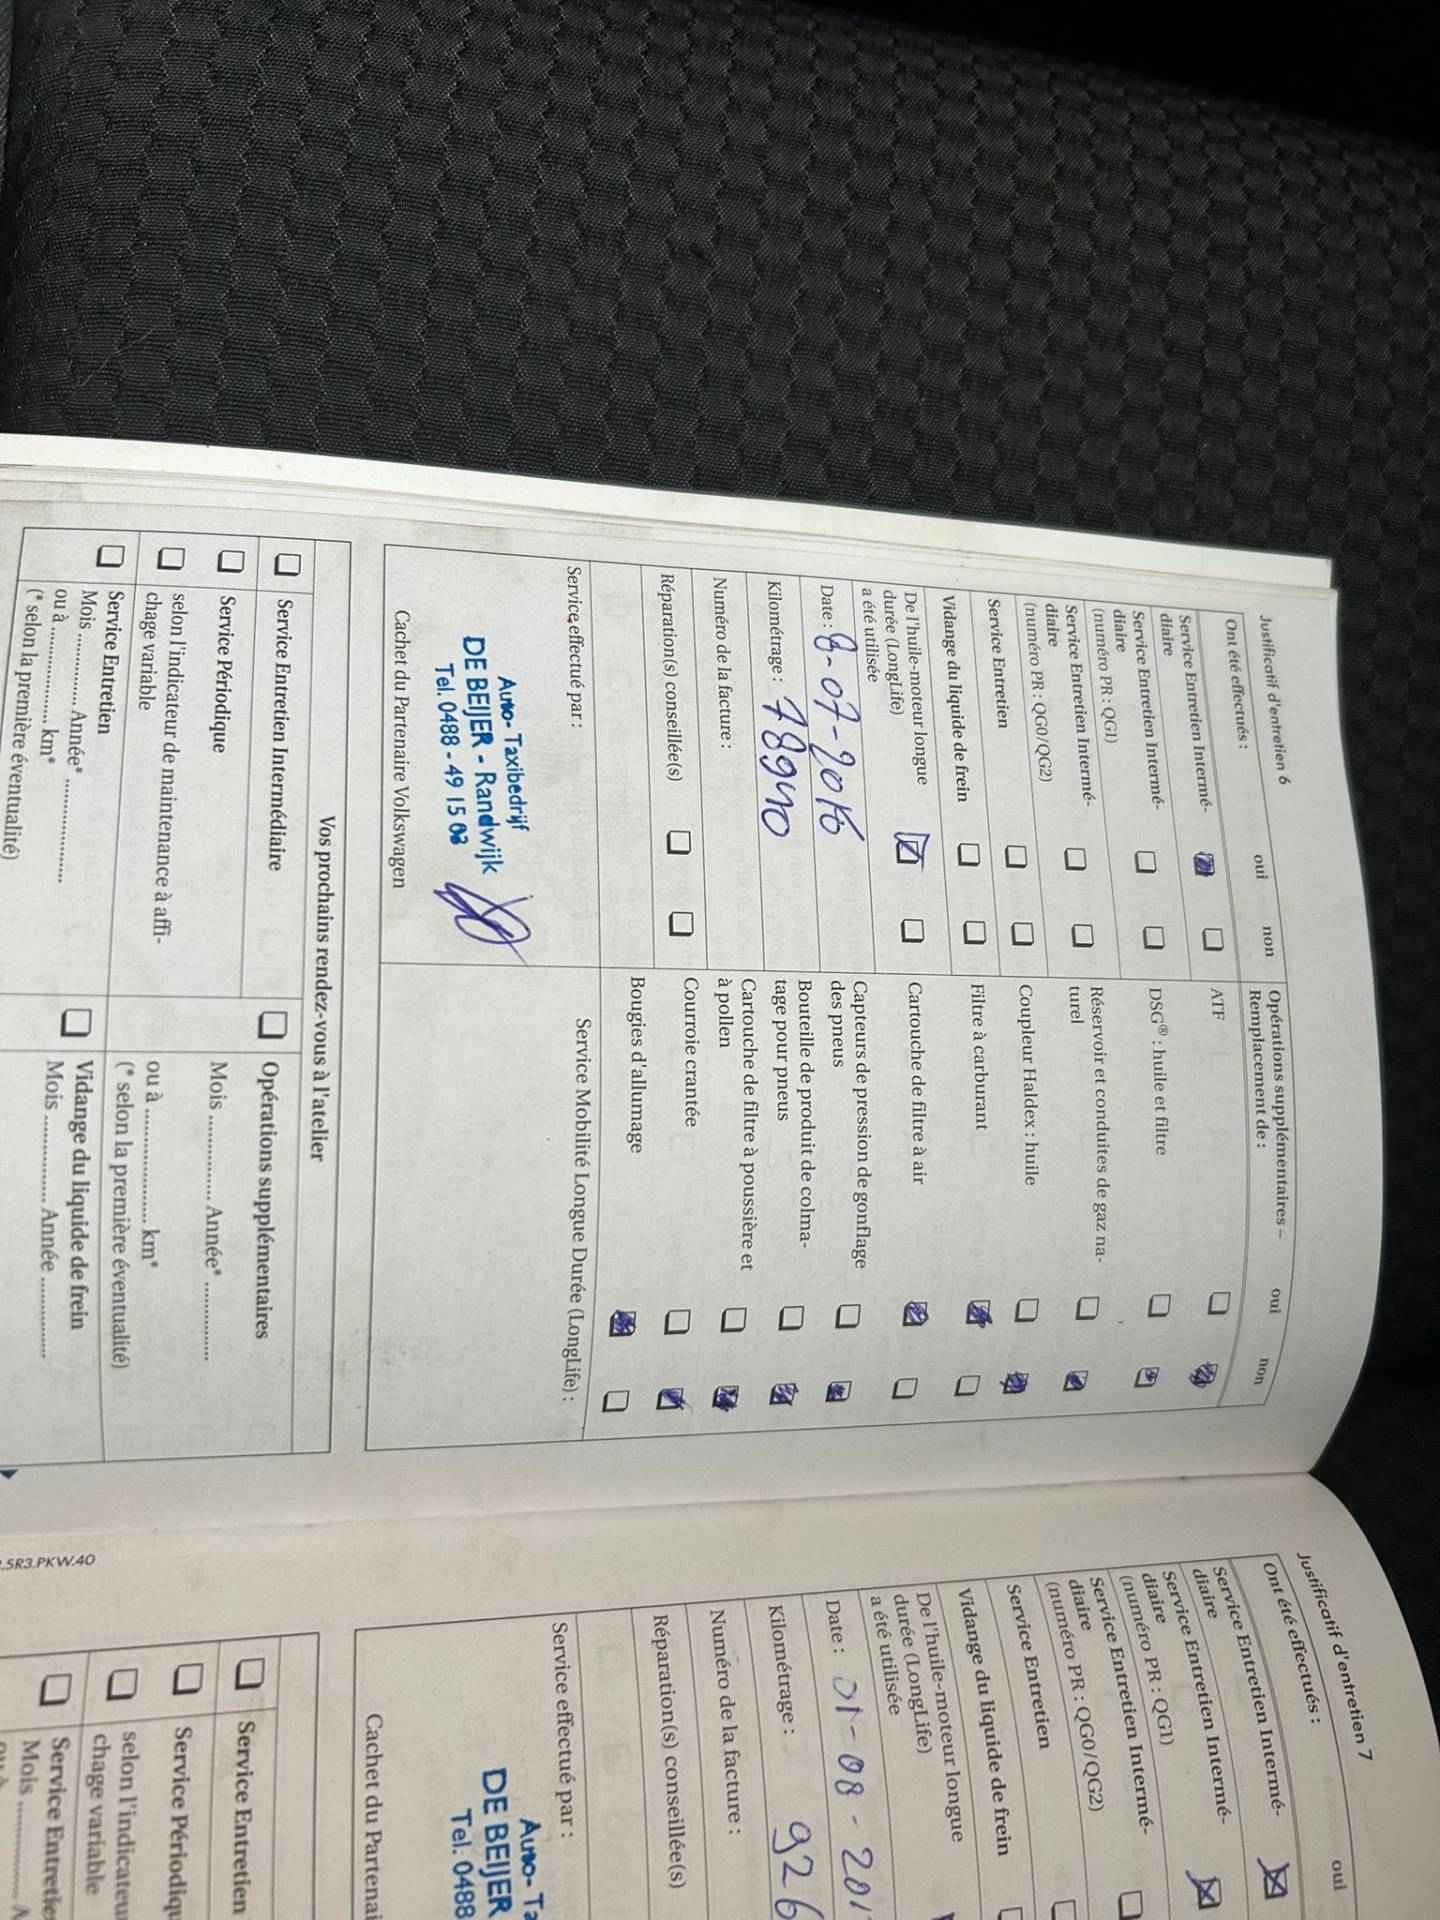 Justificatif d'entretien 6
Ont été effectués :
oui
non
Service Entretien Intermé-
diaire
Service Entretien Intermé-
diaire
(numéro PR : QG1)
Service Entretien Intermé-
diaire
(numéro PR : QG0/QG2)
Service Entretien
Vidange du liquide de frein
De l'huile-moteur longue
durée (LongLife)
a été utilisée
Date : 8-07-2016
Kilométrage : 78940
Numéro de la facture :
Réparation(s) conseillée(s)
Service effectué par :
Auto- Taxibedrijf
DE BEIJER - Randwijk
Tel. 0488 - 49 15 03
Cachet du Partenaire Volkswagen
Opérations supplémentaires –
Remplacement de :
oui
non
ATF
DSG® : huile et filtre
Réservoir et conduites de gaz na-
turel
Coupleur Haldex : huile
Filtre à carburant
Cartouche de filtre à air
Capteurs de pression de gonflage
des pneus
Bouteille de produit de colma-
tage pour pneus
Cartouche de filtre à poussière et
à pollen
Courroie crantée
Bougies d'allumage
Service Mobilité Longue Durée (LongLife) :
Vos prochains rendez-vous à l'atelier
Service Entretien Intermédiaire
Service Périodique
selon l'indicateur de maintenance à affi-
chage variable
Service Entretien
Mois ................ Année* ................
ou à ................ km*
(* selon la première éventualité)
Opérations supplémentaires
Mois ................ Année* ................
ou à ................ km*
(* selon la première éventualité)
Vidange du liquide de frein
Mois ................ Année ................
.5R3.PKW.40
Justificatif d'entretien 7
Ont été effectués :
oui
Service Entretien Intermé-
diaire
Service Entretien Intermé-
diaire
(numéro PR : QG1)
Service Entretien Intermé-
diaire
(numéro PR : QG0/QG2)
Service Entretien
Vidange du liquide de frein
De l'huile-moteur longue
durée (LongLife)
a été utilisée
Date : 01-08-201
Kilométrage : 926
Numéro de la facture :
Réparation(s) conseillée(s)
Service effectué par :
Auto- Ta
DE BEIJER
Tel. 0488
Cachet du Partenai
Service Entretien
Service Périodiqu
selon l'indicateu
chage variable
Service Entretie
Mois ................ A